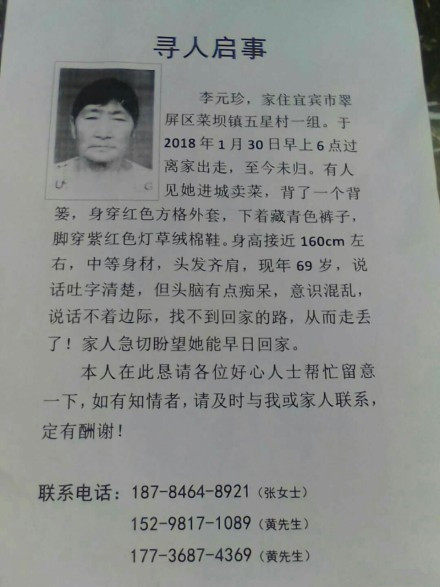 寻人启事
李元珍，家住宜宾市翠
屏区菜坝镇五星村一组。于
2018年1月30日早上6点过
离家出走，至今未归。有人
见她进城卖菜，背了一个背
篓，身穿红色方格外套，下着藏青色裤子，
脚穿紫红色灯草绒棉鞋。身高接近160cm左
右，中等身材，头发齐肩，现年69岁，说
话吐字清楚，但头脑有点痴呆，意识混乱，
说话不着边际，找不到回家的路，从而走丢
了！家人急切盼望她能早日回家。
本人在此恳请各位好心人士帮忙留意
一下，如有知情者，请及时与我或家人联系，
定有酬谢！
联系电话：187-8464-8921（张女士）
152-9817-1089（黄先生）
177-3687-4369（黄先生）